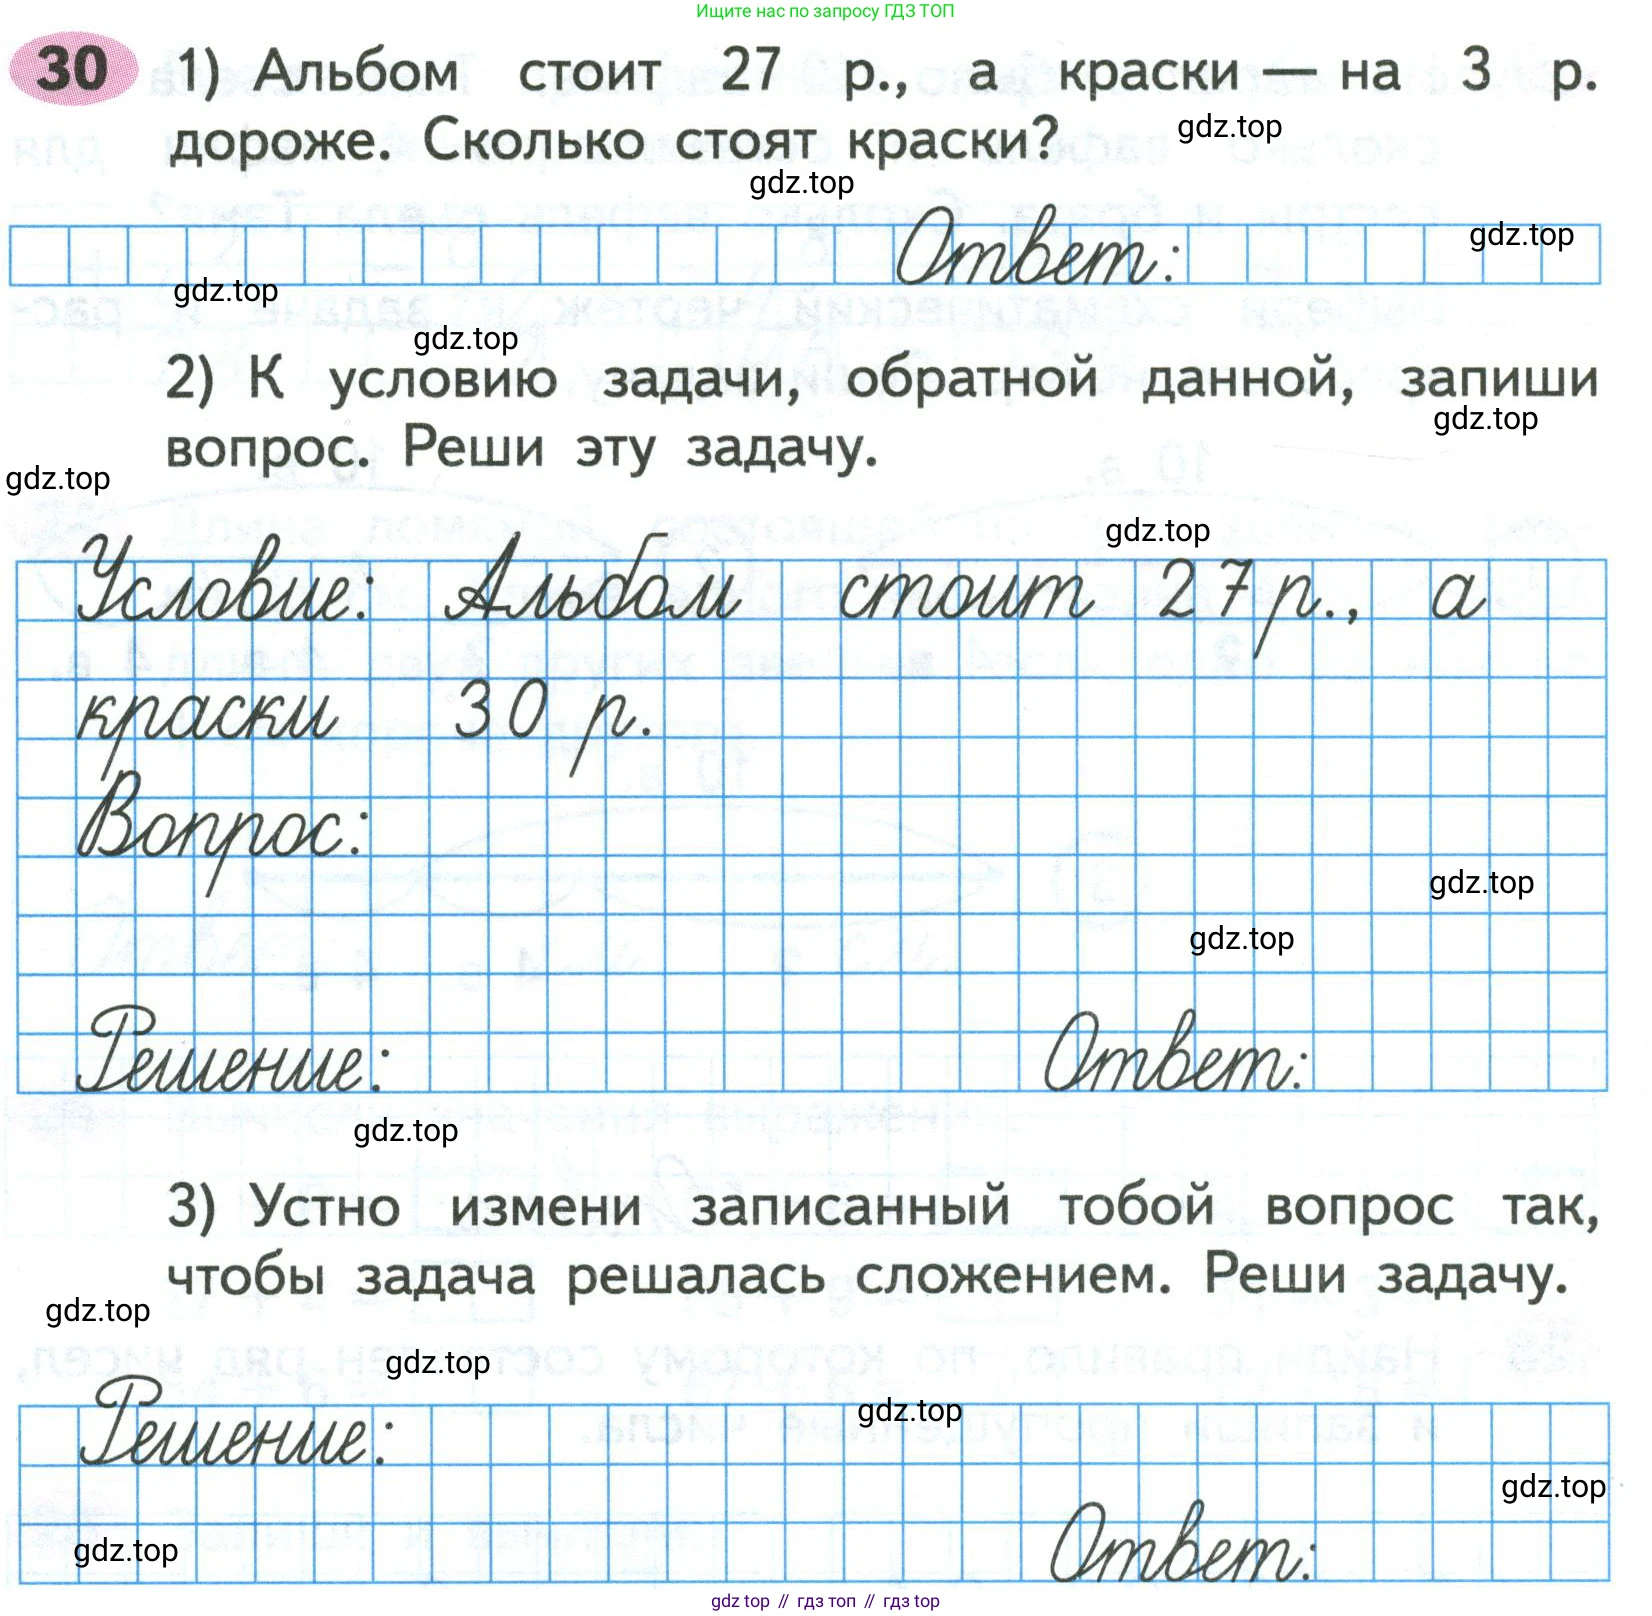 Ищите нас по запросу ГДЗ ТОП
30 1) Альбом стоит 27 р., а краски — на 3 р.
дороже. Сколько стоят краски?
gdz.top
gdz.top
Ответ:
gdz.top
gdz.top
gdz.top
2) К условию задачи, обратной данной, запиши
gdz.top
вопрос. Реши эту задачу.
gdz.top
gdz.top
Условие: Альбом стоит 27 р., а
краски 30 р.
Вопрос:
gdz.top
gdz.top
Решение: Ответ:
gdz.top
3) Устно измени записанный тобой вопрос так,
чтобы задача решалась сложением. Реши задачу.
gdz.top
gdz.top
gdz.top
Решение:
gdz.top
gdz.top
Ответ:
gdz top // гдз топ // гдз top